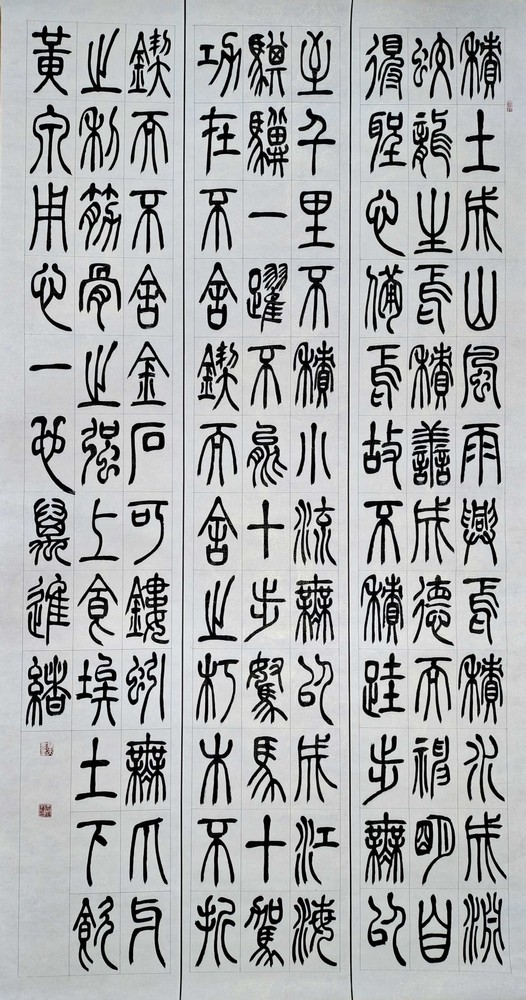 積土成山風雨興焉積水成淵
蛟龍生焉積善成德而神明自
得聖心備焉故不積跬步無以
至千里不積小流無以成江海
騏驥一躍不能十步駑馬十駕
功在不舍鍥而舍之朽木不折
鍥而不舍金石可鏤蚓無爪牙
之利筋骨之強上食埃土下飲
黃泉用心一也進